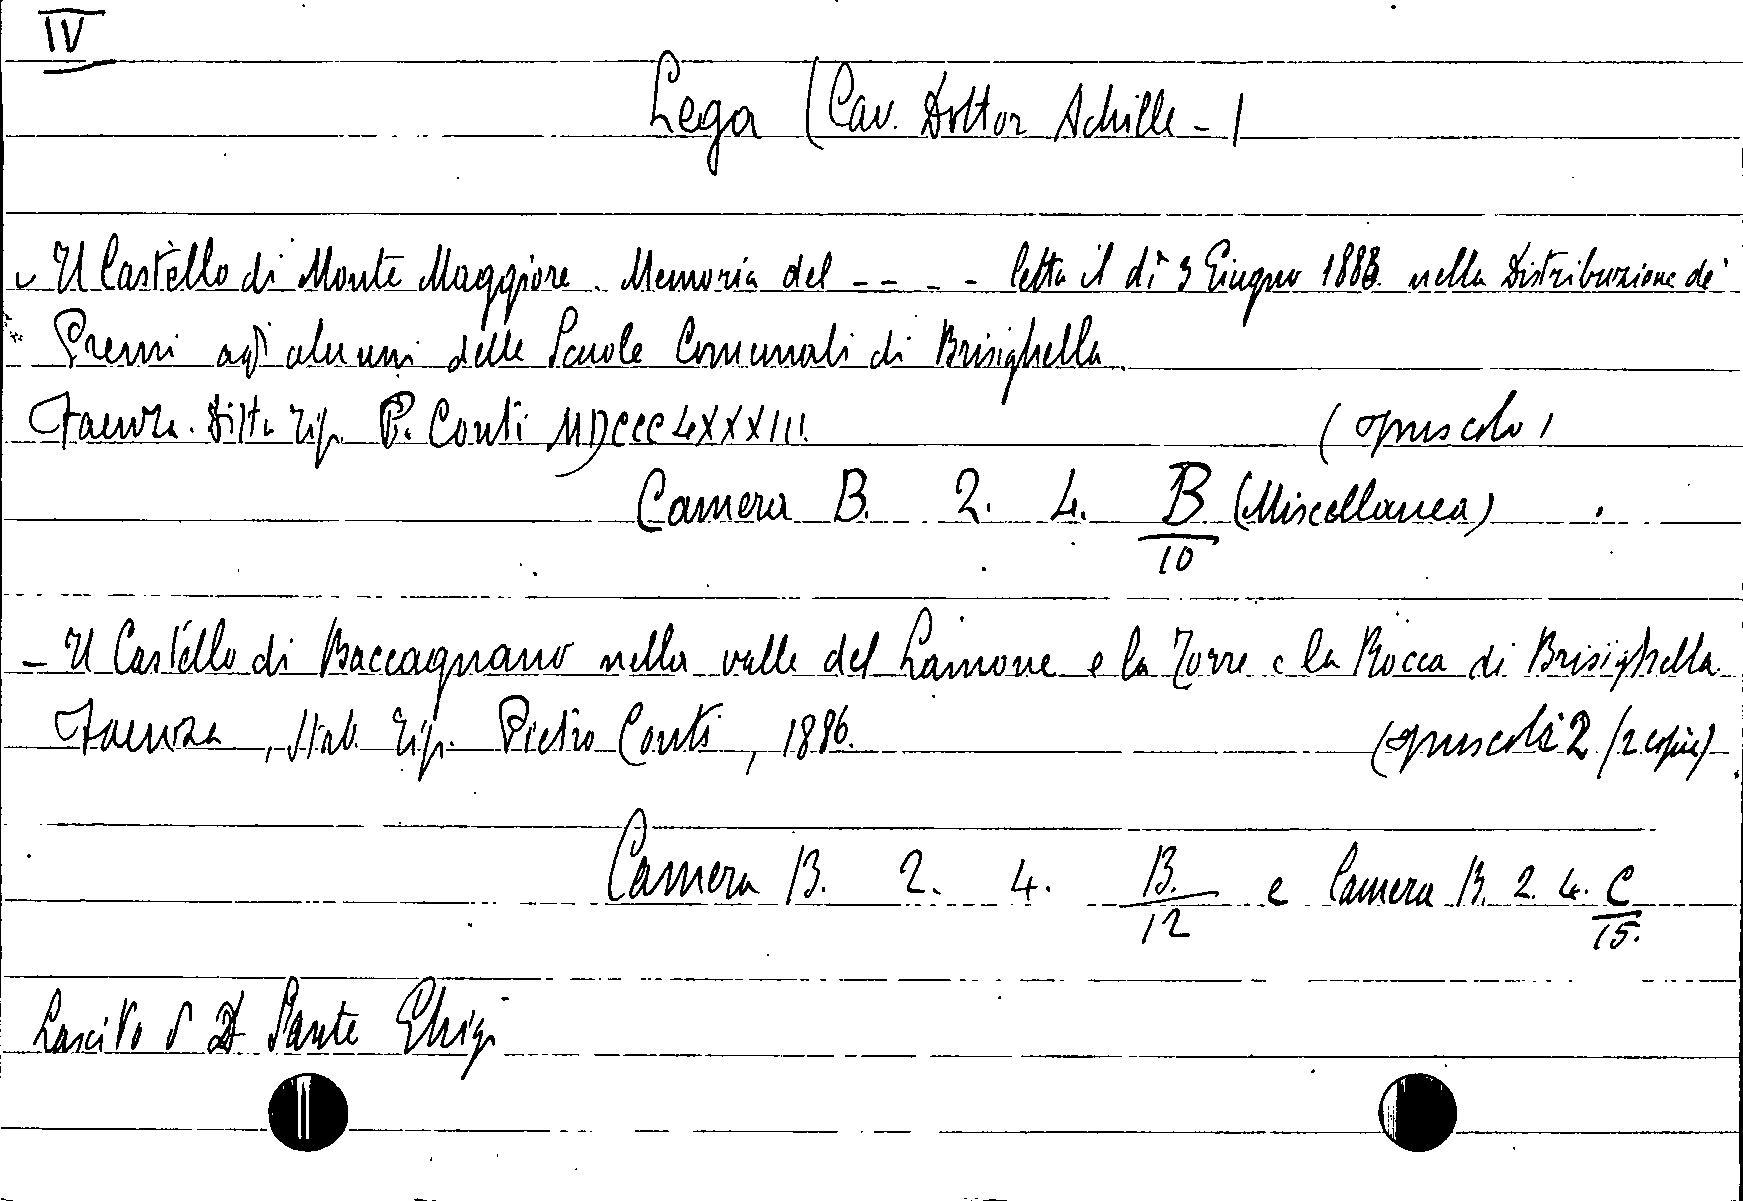 IV
Lega (Cav. Dottor Achille - )
Il Castello di Monte Maggiore. Memoria del - - - - letta il dì 3 Giugno 1883 nella Distribuzione de'
Premi agl' alunni delle Scuole Comunali di Brisighella.
Faenza. Ditta Tip. P. Conti MDCCCLXXXIII. (opuscolo)
Camera B. 2. 4. B/10 (Miscellanea)
- Il Castello di Baccagnano nella valle del Lamone e la Torre e la Rocca di Brisighella
Faenza, Stab. Tip. Pietro Conti, 1886. (opuscoli 2 (2 copie)
Camera B. 2. 4. B./12 e Camera B. 2. 4. C/15.
Lascito Sante Ghigi